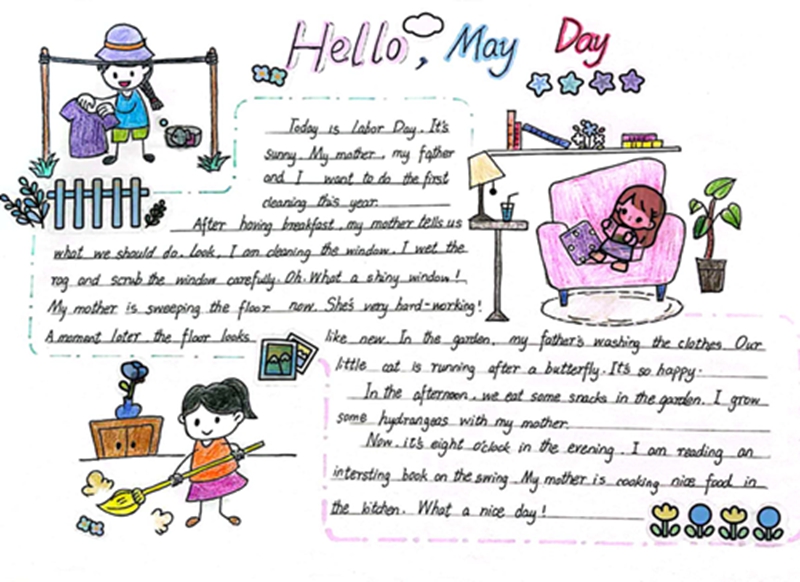 Hello, May Day
Today is Labor Day. It's
sunny. My mother, my father
and I want to do the first
cleaning this year.
After having breakfast, my mother tells us
what we should do. Look, I am cleaning the window. I wet the
rag and scrub the window carefully. Oh. What a shiny window!
My mother is sweeping the floor now. She's very hard-working!
A moment later, the floor looks
like new. In the garden, my father's washing the clothes. Our
little cat is running after a butterfly. It's so happy.
In the afternoon, we eat some snacks in the garden. I grow
some hydrangeas with my mother.
Now, it's eight o'clock in the evening. I am reading an
intersting book on the swing. My mother is cooking nice food in
the kitchen. What a nice day!